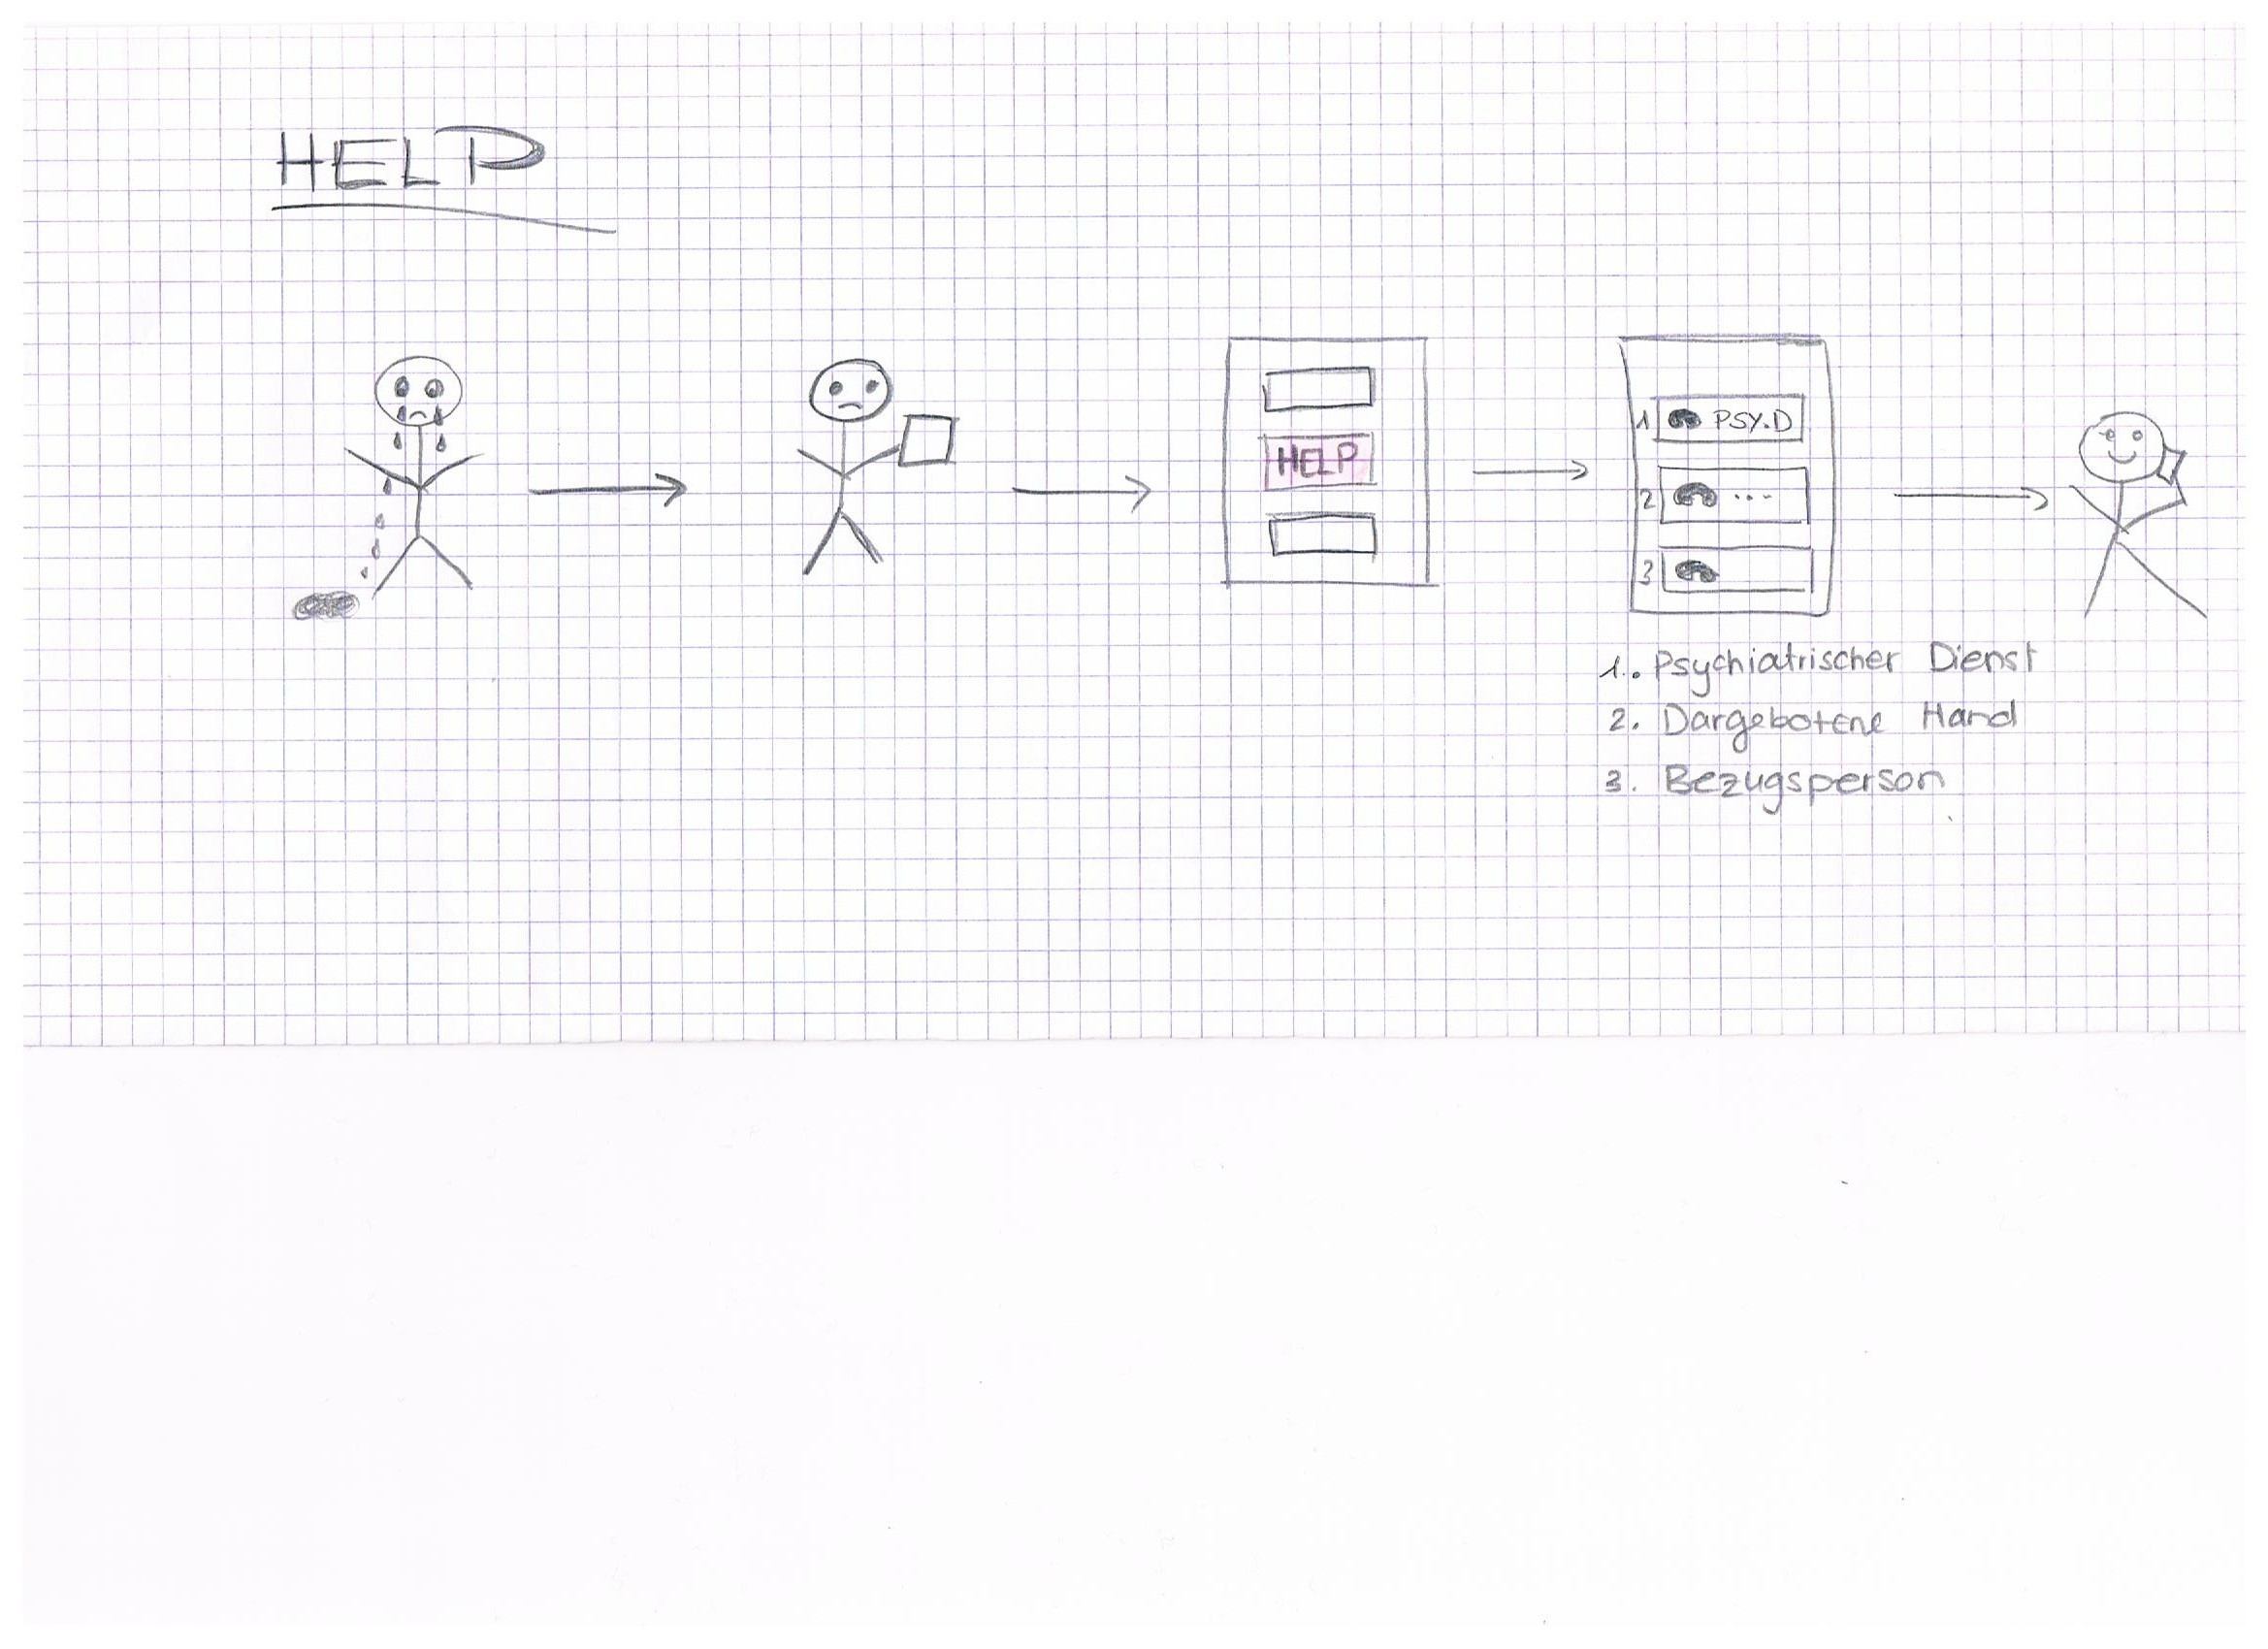 HELP
HELP
1 PSY.D
2 ....
3
1. Psychiatrischer Dienst
2. Dargebotene Hand
3. Bezugsperson